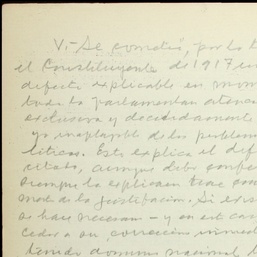 V.- Se cometió, por lo t
el Constituyente de 1917 un
defecto explicable en mom
toda la parlamentar atenc
exclusiva y decididamente
yo inaplazable de los problem
líticos. Esto explica el def
citado, aunque debe confe
siempre lo explicam tiene con
mode la justificación. Si exis
se hace necesario - y en est cas
ceder a su corrección inmed
tenido dominio nacional l